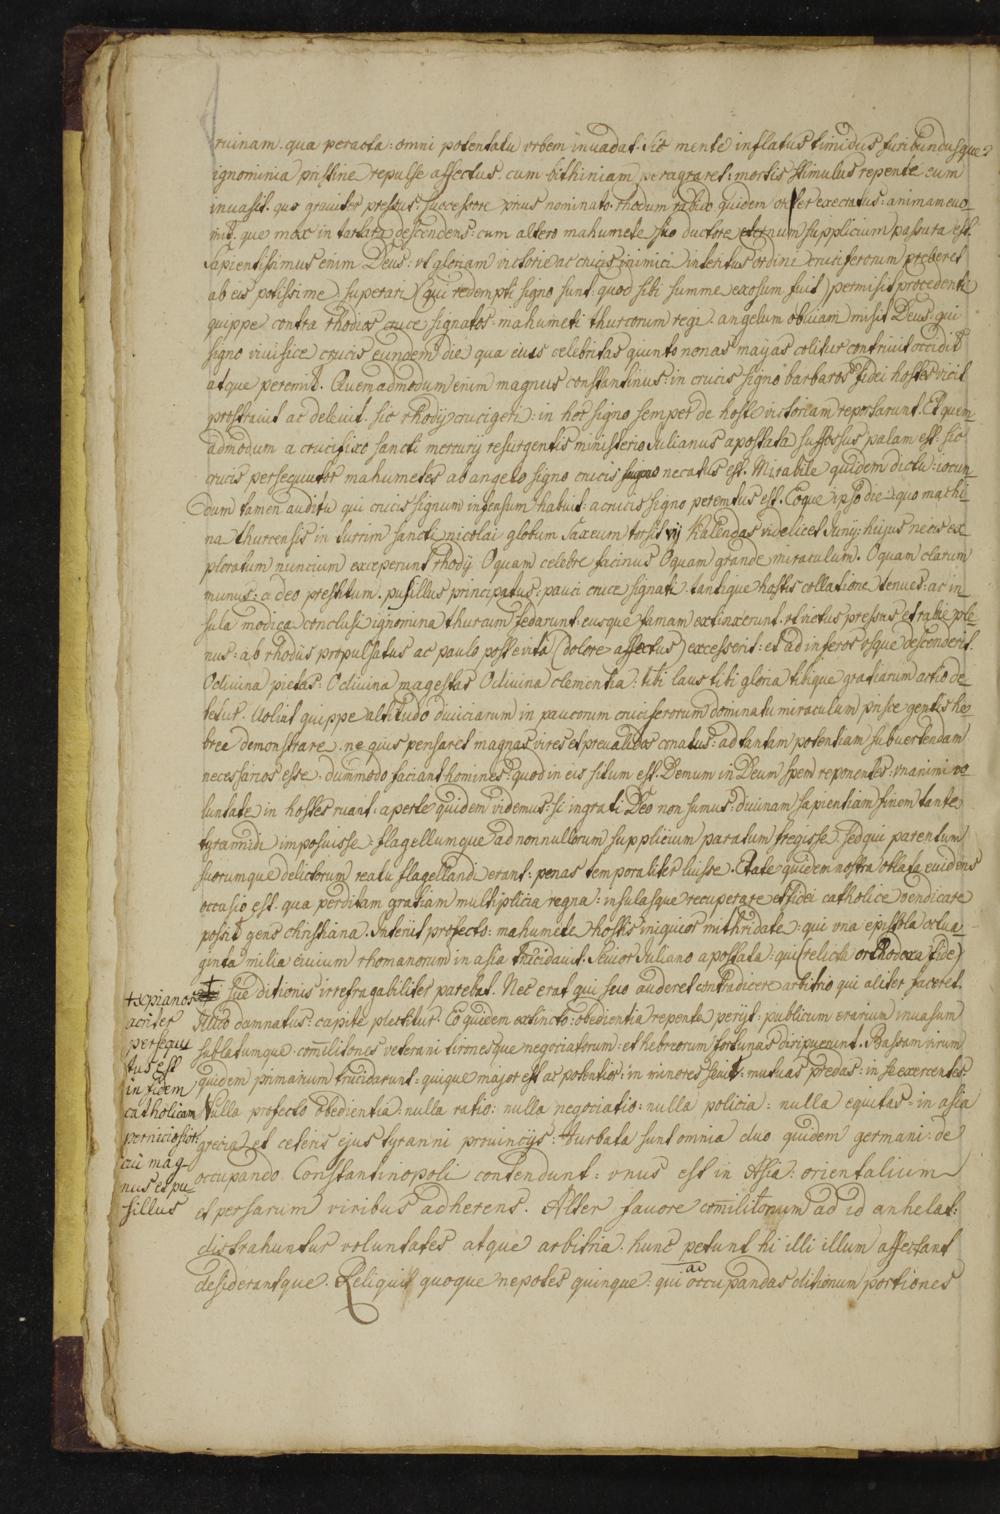 ruinam. qua peracta: omni potentatu vrbem inuadat. Sic mente inflatus timidus furibundusque:
ignominia pristine repulse affectus. cum bithiniam peragraret: mortis stimulus repente eum
inuasit. quo grauiter pressus: successore prius nominato. rhodum rabido quidem ore execratus: animam euo-
mit. que mox in tartara descendens: cum altero mahumete suo ductore eternum supplicium passura est.
Sapientissimus enim Deus: vt gloriam victorie ac crucis inimici interitus ordini cruciferorum preberet
ab eis potissime superari (qui redempti signo sunt: quod sibi summe exosum fuit) permisit procedenti
quippe contra rhodios cruce signatos: mahumeti thurcorum regi. angelum obuiam misit Deus: qui
signo viuifice crucis eundem die qua eius celebritas quinto nonas mayas colitur contriuit occidit
atque peremit. Quemadmodum enim magnus constantinus: in crucis signo barbaros fidei hostes vicit
prostrauit ac deleuit. sic rhodij crucigeri: in hoc signo semper de hoste victoriam reportarunt. Et quem-
admodum a crucifixo sancti mercurij resurgentis ministerio Julianus apostata suffossus palam est. sic
crucis persequutor mahumetes ab angelo signo crucis necatus est. Mirabile quidem dictu: iocun-
dum tamen auditu qui crucis signum infensum habuit: a crucis signo peremtus est. Eoque ipso die quo machi-
na thurcensis in turrim sancti nicolai globum saxeum torsit vij Kalendas videlicet Junij: hujus necis ex-
ploratum nuncium exceperunt rhodij O quam celebre facinus O quam grande miraculum. O quam clarum
munus: a deo prestitum. pusillus principatus: pauci cruce signati. tantique hostis collatione tenues: ac in-
sula modica conclusi ignomina thurcum fedarunt: eiusque famam extinxerunt. vt victus pressus et rabie ple-
nus: ab rhodiis propulsatus ac paulo post e vita (dolore affectus) excesserit: et ad inferos vsque descenderit.
O diuina pietas: O diuina magestas O diuina clementia: tibi laus tibi gloria tibique gratiarum actio de-
tetur. Voluit quippe altitudo diuiciarum in paucorum cruciferorum dominatu miraculum prisce gentis he-
bree demonstrare. ne quis pensaret magnas vires et preualidos conatus: ad tantam potentiam subuertendam
necessarios esse. dummodo faciant homines: quod in eis situm est. Demum in Deum spem reponentes: vnanimi vo-
luntate in hostes ruant. aperte quidem videmus: si ingrati Deo non sumus: diuinam sapientiam finem tante
tyrannidi imposuisse. flagellumque ad nonnullorum supplicium paratum fregisse. sed qui parentum
suorumque delictorum reatu flagellandi erant: penas temporaliter luisse. Etate quidem nostra oblata euidens
occasio est. qua perditam gratiam multiplicia regna: insulasque recuperare et fidei catholice vendicare
possit gens christiana. Interijt profecto: mahumete hostis iniquior mithridate: qui vna epistola octua-
ginta milia ciuium rhomanorum in asia trucidauit. Seuior Juliano apostata: qui (relicta orthodoxa fide)
sue ditionis irrefragabiliter parebat. Nec erat qui suo auderet contradicere arbitrio qui aliter faceret.
Illico damnatus: capite plectitur. Eo quidem extincto: obedientia repente perijt: publicum erarium inuasum
sublatumque: com̄ilitones veterani tironesque negociatorum: et hebreorum fortunas diripuerunt. Bassam virum
quidem primarium trucidarunt: quique major est ac potentior: in minores seuit: mutuas predas: in se exercentes
Nulla profecto obedientia: nulla ratio: nulla negociatio: nulla policia: nulla equitas: in asia
grecia et ceteris ejus tyranni prouincijs: Turbata sunt omnia duo quidem germani: de
occupando Constantinopoli contendunt: vnus est in Asia: orientalium
et persarum viribus adherens. Alter fauore com̄ilitonum ad id anhelat:
distrahuntur voluntates atque arbitria. hunc petunt hi illi illum affectant
desiderantque. Reliquit quoque nepotes quinque: qui ac occupandas ditionum portiones
+ xpianos
acriter
persequu
tus est
in fidem
catholicam
perniciosior:
cui mag-
nus et pu-
sillus